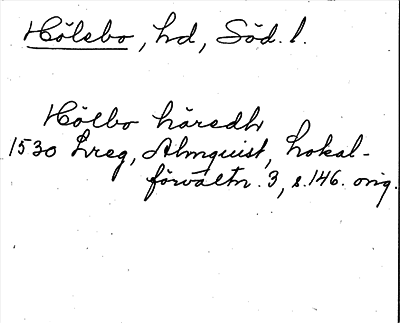 Hölebo, hd, Söd. l.
Hölbo häredh
1530 Lreg, Almquist, Lokal-
förvaltn. 3, s. 146. orig.